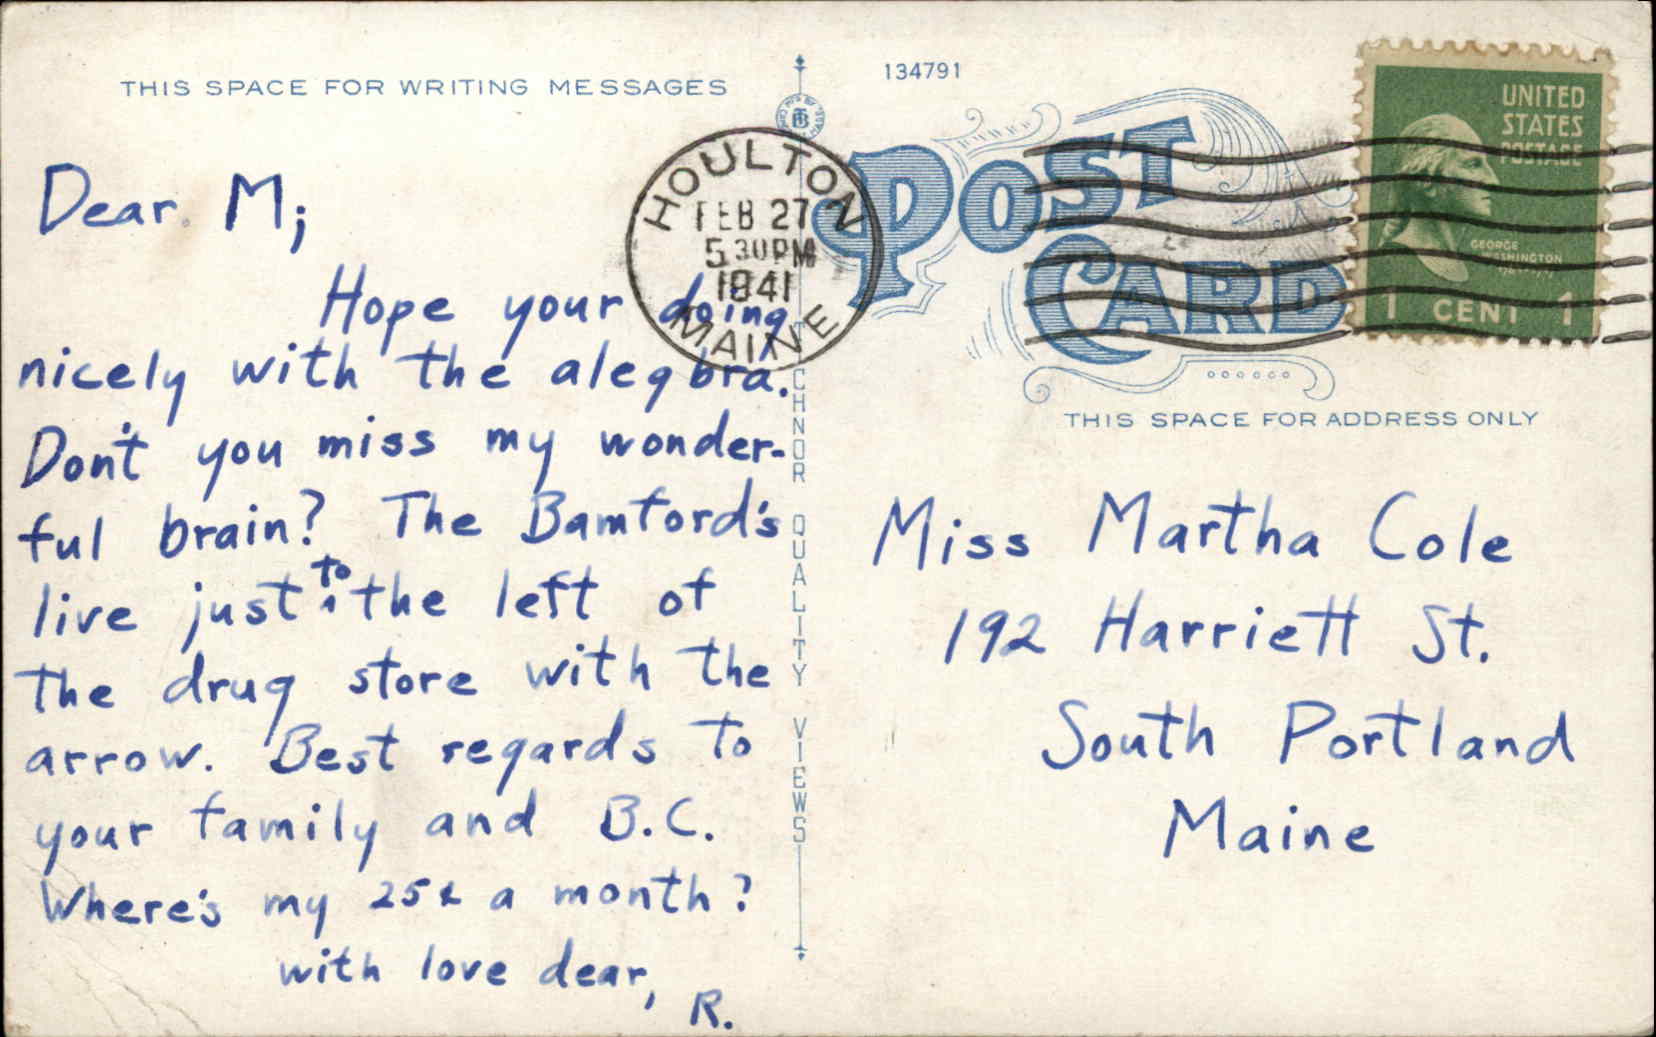 THIS SPACE FOR WRITING MESSAGES
Dear M;
Hope your doing
nicely with the alegbra.
Don't you miss my wonder-
ful brain? The Bamford's
live just to the left of
the drug store with the
arrow. Best regards to
your family and B.C.
Where's my 25¢ a month?
with love dear,
R.
HOULTON
FEB 27
5 30 PM
1941
MAINE
CHNOR QUALITY VIEWS
134791
POST
CARD
UNITED
STATES
POSTAGE
GEORGE
WASHINGTON
1 CENT 1
THIS SPACE FOR ADDRESS ONLY
Miss Martha Cole
192 Harriett St.
South Portland
Maine